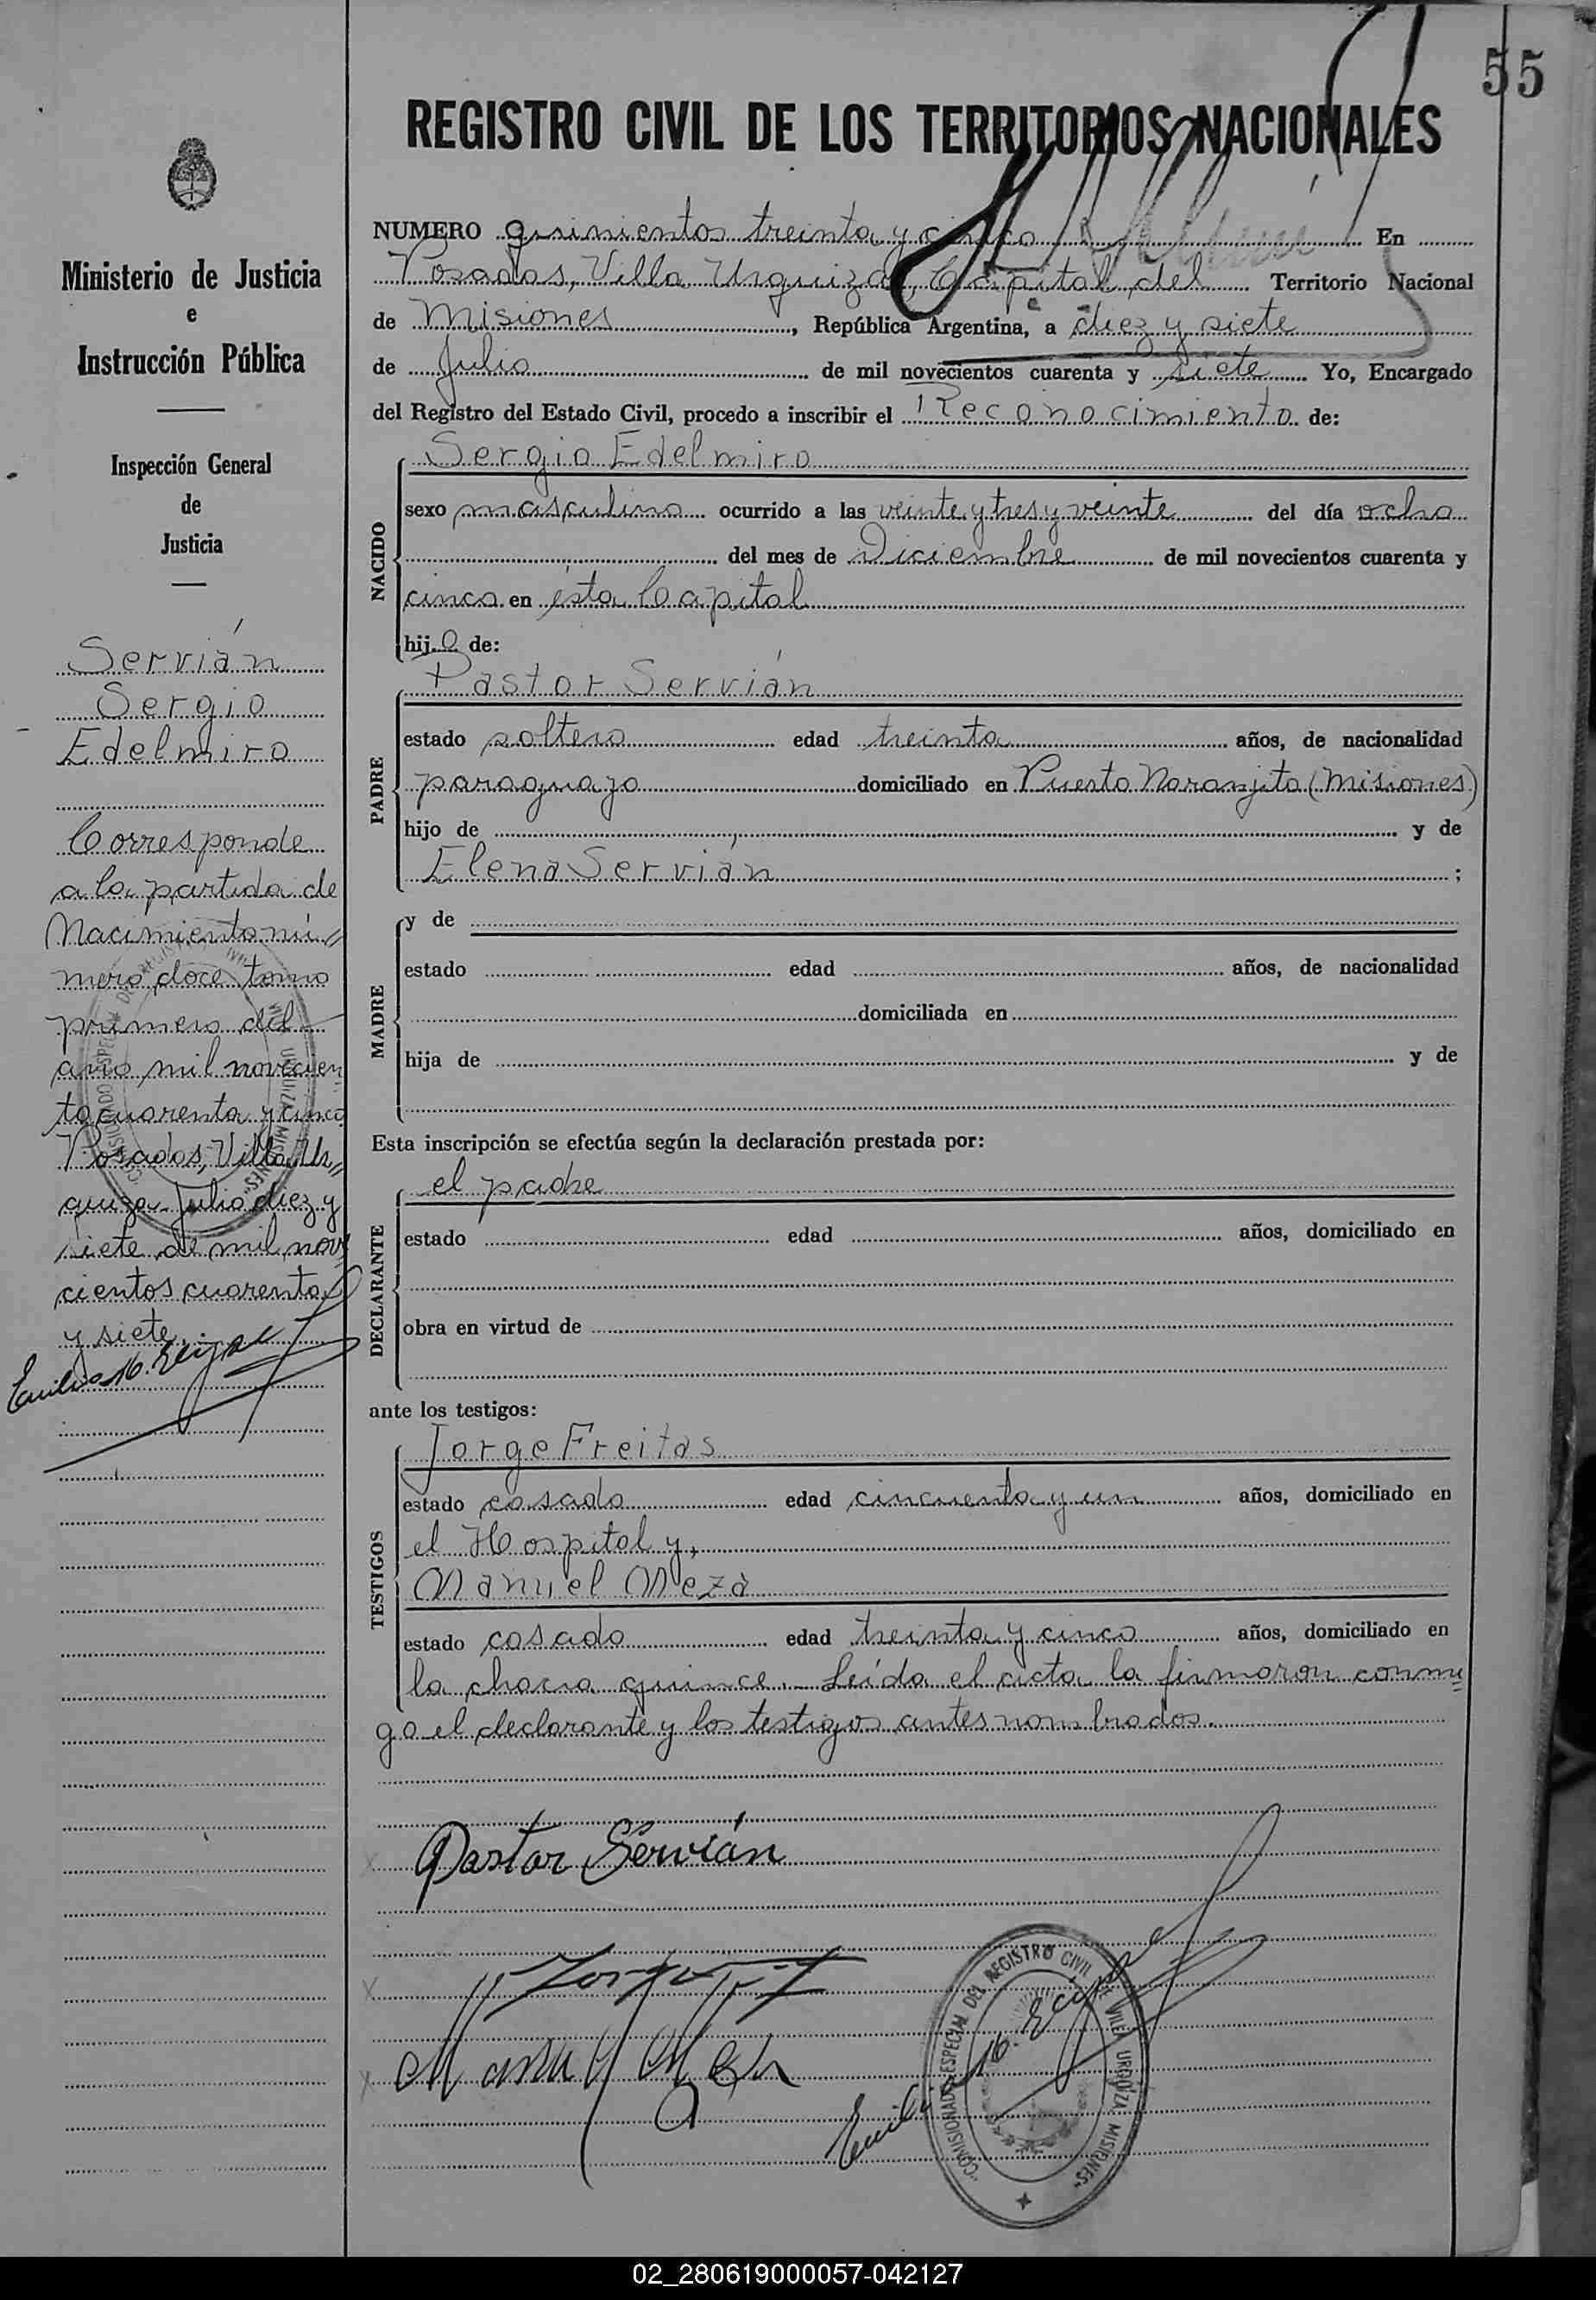 55
REGISTRO CIVIL DE LOS TERRITORIOS NACIONALES
NUMERO quinientos treinta y cinco En
Posadas, Villa Urquiza, Capital del Territorio Nacional
de Misiones, República Argentina, a diez y siete
de Julio de mil novecientos cuarenta y siete Yo, Encargado
del Registro del Estado Civil, procedo a inscribir el Reconocimiento de:
NACIDO
Sergio Edelmiro
sexo masculino ocurrido a las veinte y tres y veinte del día ocho
del mes de Diciembre de mil novecientos cuarenta y
cinco en ésta Capital
hijo de:
PADRE
Pastor Servián
estado soltero edad treinta años, de nacionalidad
paraguayo domiciliado en Puerto Naranjito (Misiones)
hijo de y de
Elena Servián ;
MADRE
y de
estado edad años, de nacionalidad
domiciliada en
hija de y de
Esta inscripción se efectúa según la declaración prestada por:
DECLARANTE
el padre
estado edad años, domiciliado en
obra en virtud de
ante los testigos:
TESTIGOS
Jorge Freitas
estado casado edad cincuenta y un años, domiciliado en
el Hospital y,
Manuel Meza
estado casado edad treinta y cinco años, domiciliado en
la chacra quince.- Leída el acta la firmaron conmi
go el declarante y los testigos antes nombrados.
Pastor Servián
Manuel Meza
COMISIONADO ESPECIAL DEL REGISTRO CIVIL DE VILLA URQUIZA MISIONES
Ministerio de Justicia
e
Instrucción Pública
Inspección General
de
Justicia
Servián
Sergio
Edelmiro
Corresponde
a la partida de
Nacimiento nú
mero doce tomo
primero del
año mil novecien
to cuarenta y cinco
Posadas, Villa Ur
quiza Julio diez y
siete de mil nove
cientos cuarenta
y siete.
02_280619000057-042127